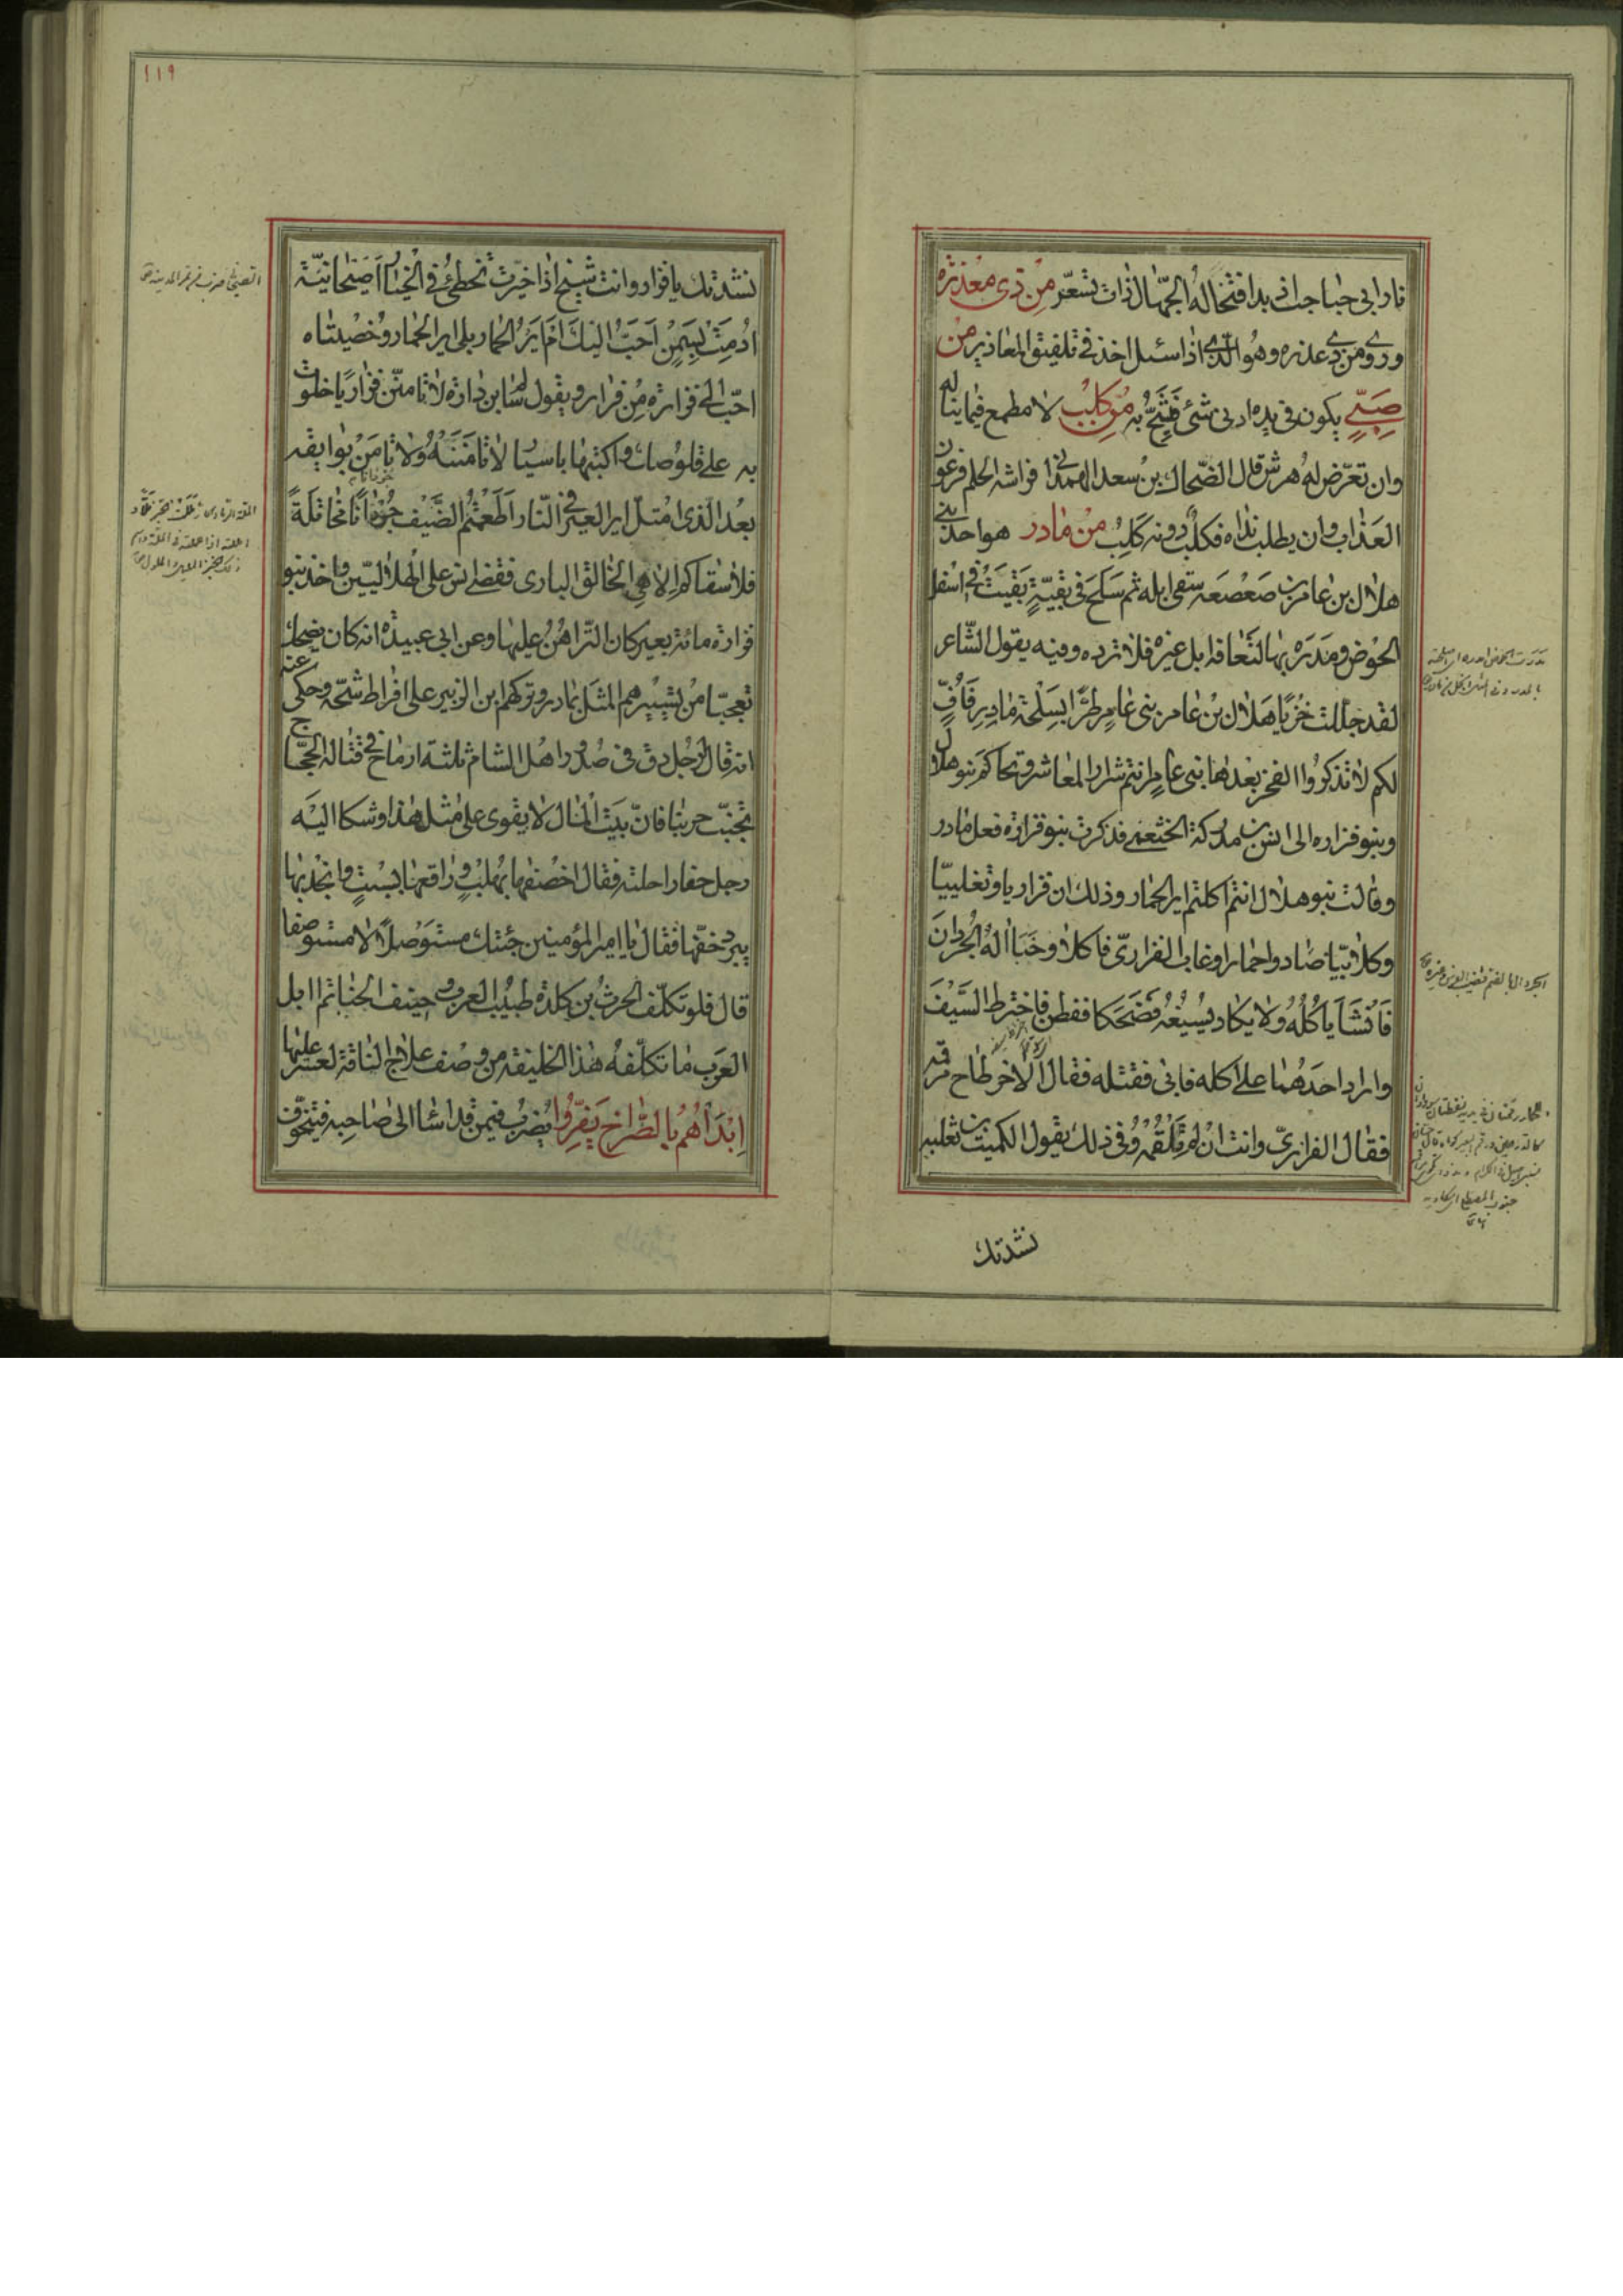 نار ابى حباحب اذ بدا فتخاله الجهّال ذات تسعّر من ذى معذرة
وروى ومن ذى عذره وهو الّذى اذا سئل اخذ فى تلفيق المعاذير من
صَبِىٍّ يكون فى يده ادنى شئ فيشحّ به من كلب لا مطمع فيما يناله
وان تعرّض له هرش قال الضّحاك بن سعد الهمدانى فراشه الحلم فرعون
العذاب وان يطلب نداه فكلب دونه كلب من مادر هو احد بنى
هلال بن عامر بن صعصعه سقى ابله ثم سلح فى بقيّة بقيت فى اسفل
الحوض ومدره بها لتعافه ابل غيره فلا ترده وفيه يقول الشّاعر
لقد جللت خزيا هلال بن عامر بنى عامر طرّا بسلحة مادر فافّ
لكم لا تذكروا الفخر بعدها بنى عامر انتم شرار المعاشر وتحاكم بنو هلال
وبنو فزاره الى انس بن مدركة الخثعمى فذكرت بنو فزارة فعل مادر
وقالت بنو هلال انتم اكلتم اير الحمار وذلك ان فزاريا وتغلبيّا
وكلابيّا صادوا حمارا وغاب الفزارىّ فاكلا وخبأا له الجردان
فانشأ ياكله ولا يكاد يسيغه فضحكا ففطن فاخترط السّيف
واراد احدهما على اكله فابى فقتله فقال الاخر طاح مرقمه
فقال الفزارىّ وانت ان لم تلقمه وفى ذلك يقول الكميت بن ثعلبه
نشدتك
١١٩
نشدتك يا فزار وانت شيخ اذا خيّرت تخطئ فى الخيار اصيحانيّة
ادمت بسمن احبّ اليك ام اير الحمار بلى اير الحمار وخصيتاه
احبّ الى فزارة من فزار ويقول سالم بن دارة لا تامننّ فزاريّا خلوت
به على قلوصك واكتبها باسيار لا تامننه ولا تامن بوايقه
بعد الّذى امتلّ اير العير فى النّار اطعمتم الضّيف جوفانا مخاتلة
فلا سقاكم الاهى الخالق البارى فقضى انس على الهلاليّين واخذ بنو
فزارة مائة بعير كان التّراهن عليها وعن ابى عبيدة انه كان يضحك
تعجّبا من تسييرهم المثل بمادر وتركهم ابن الزبير على افراط شحّه وحكى عنه
انه قال لرجل دق فى صدور اهل الشام ثلثة ارماح فى قتاله الحجّاج
تجنّب حربنا فانّ بيت المال لا يقوى على مثل هذا وشكا اليه
رجل حفا راحلته فقال اخصفها بهلب وارقعها بسبت وانجد بها
يبرد خفّها فقال يا امير المؤمنين جئتك مستوصلا لا مستوصفا
قال فلو تكلّف الحرث بن كلدة طبيب العرب وحنيف الحناتم ابل
العرب ما تكلّفه هذا الخليفة من وصف علاج النّاقة لعسر عليها
ابدأهم بالصّراخ يفرّوا يضرب فيمن قد اسا الى صاحبه فيتخوّف